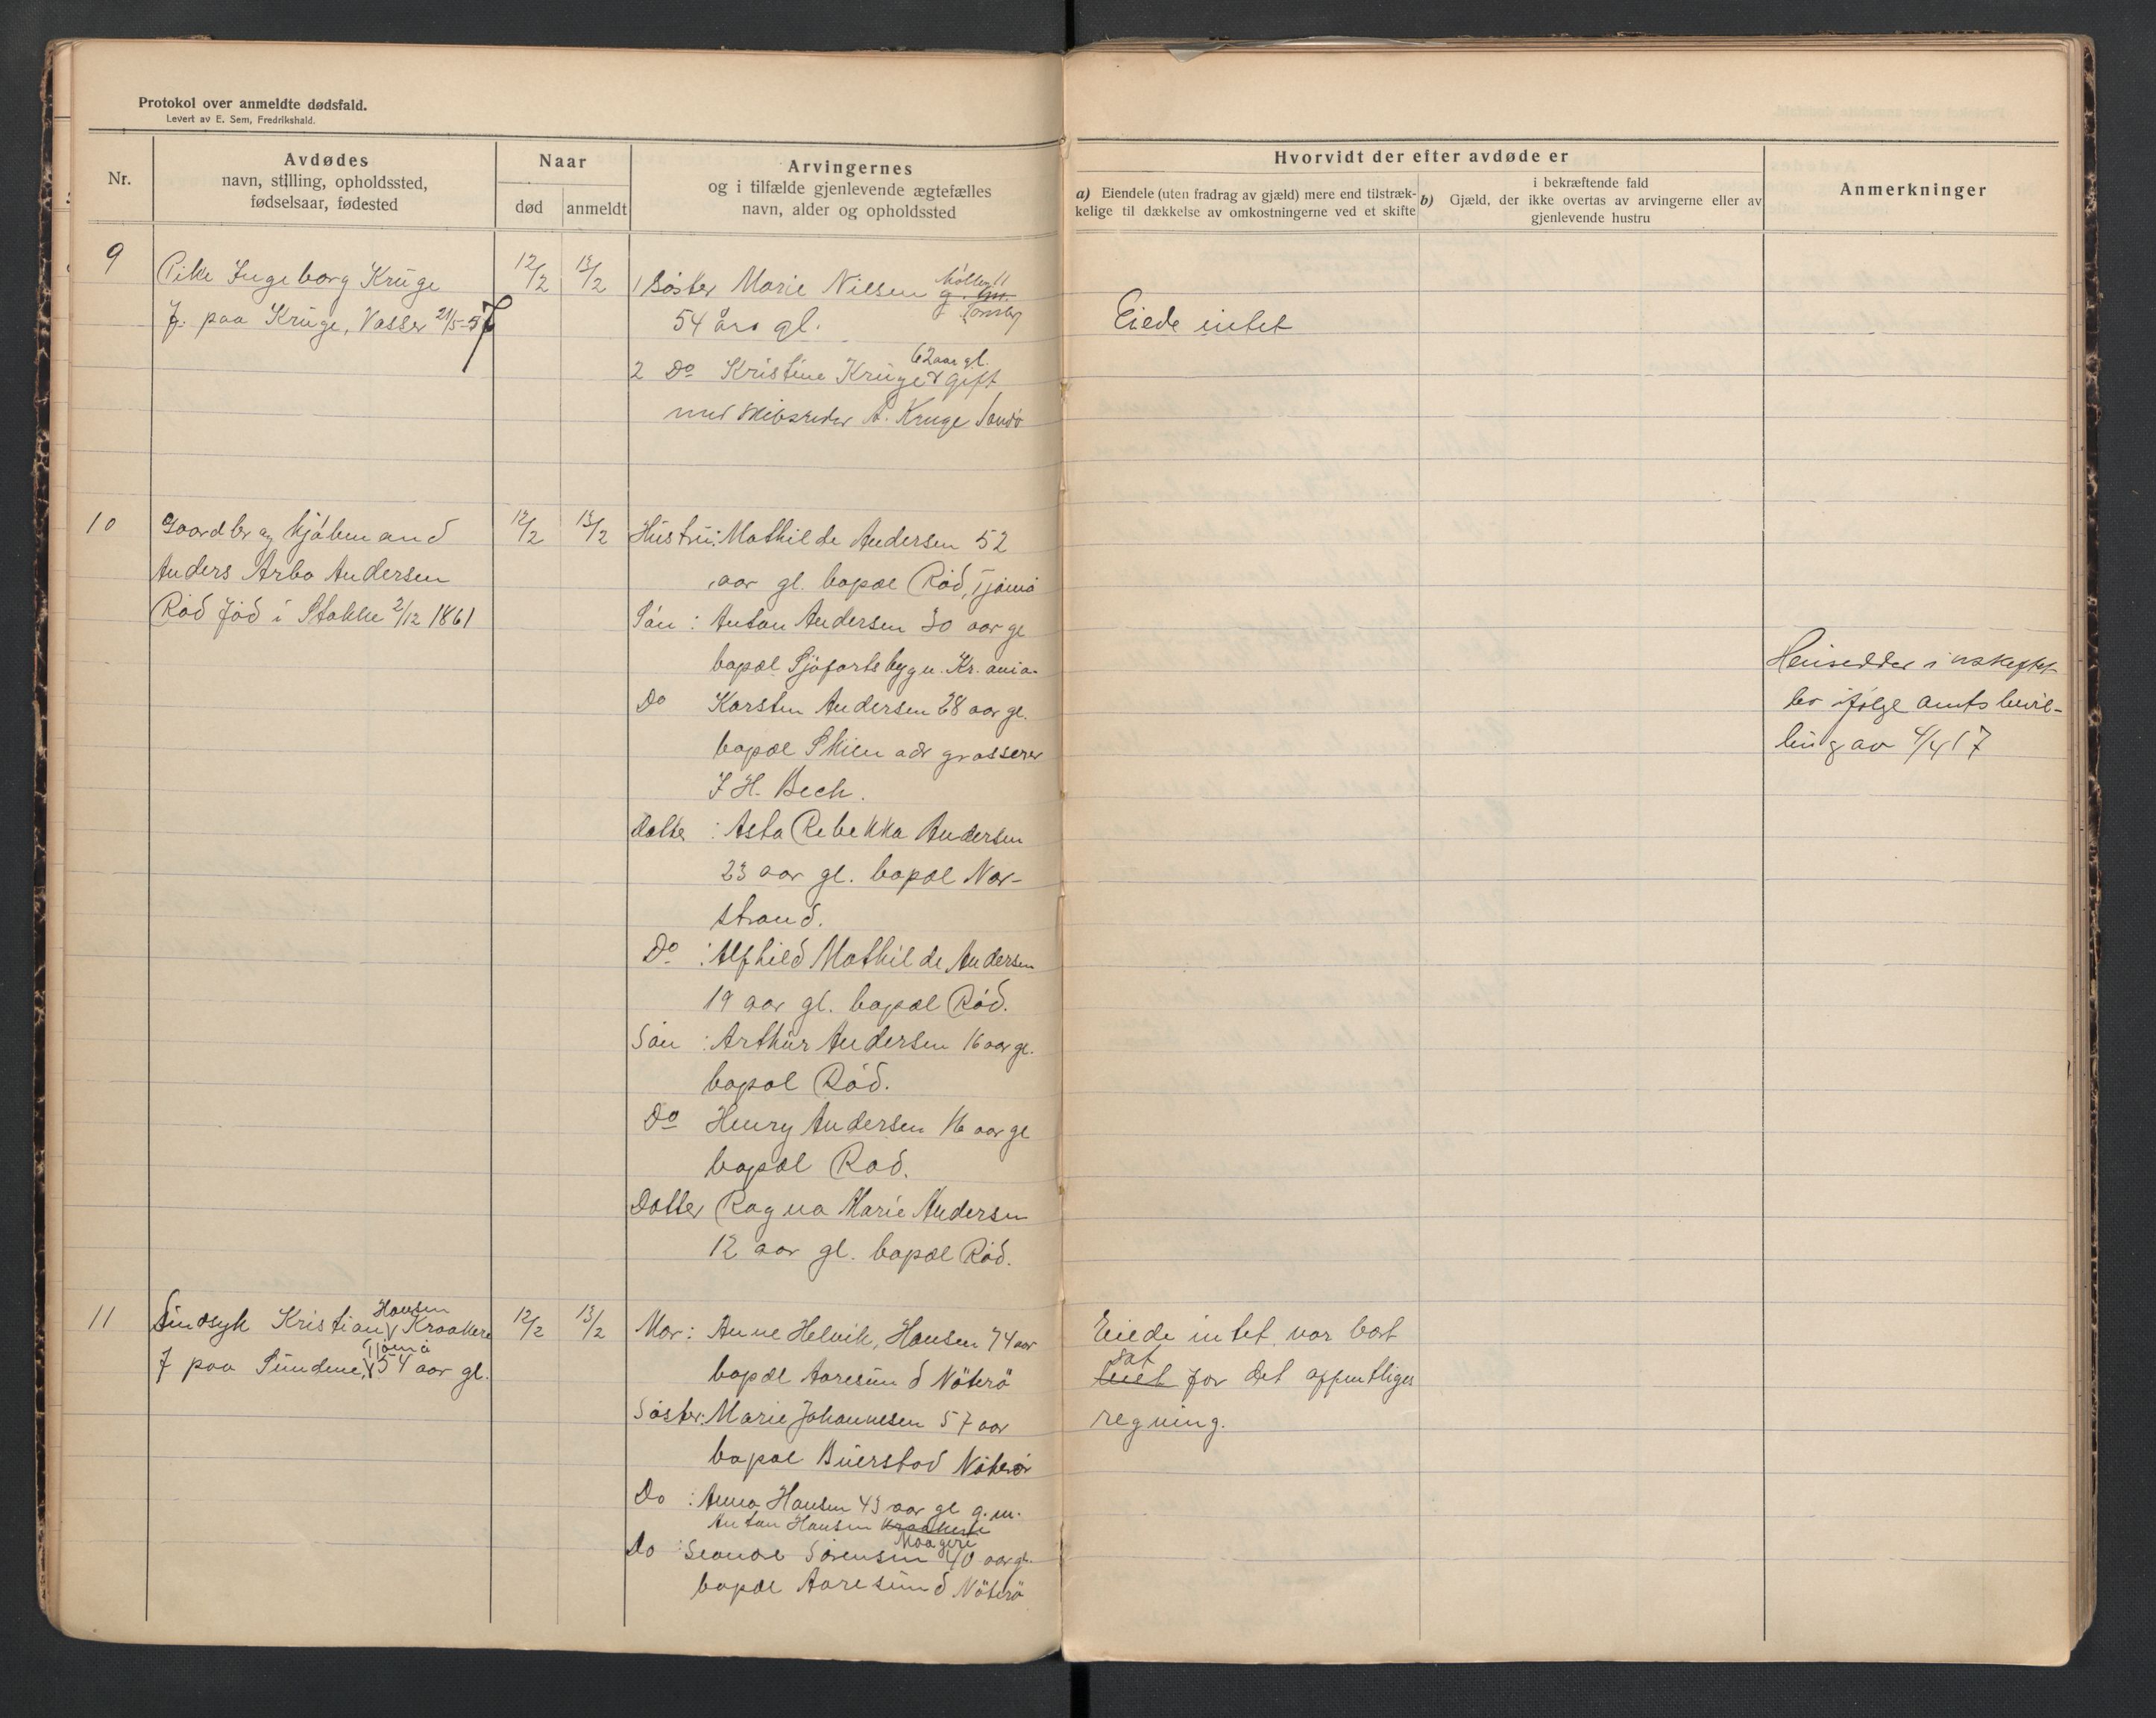 Protokol over anmeldte dødsfald.
Levert av E. Sem, Fredrikshald.
Nr.
Avdødes
navn, stilling, opholdssted,
fødselsaar, fødested
Naar
død
anmeldt
Arvingernes
og i tilfælde gjenlevende ægtefælles
navn, alder og opholdssted
Hvorvidt der efter avdøde er
a) Eiendele (uten fradrag av gjæld) mere end tilstræk-
kelige til dækkelse av omkostningerne ved et skifte
i bekræftende fald
b) Gjæld, der ikke overtas av arvingerne eller av
gjenlevende hustru
Anmerkninger
9
Pike Ingeborg Kruge
f. paa Kruge, Vasser 21/5-57
12/2
13/2
1 Søster Marie Nielsen g. m.
Tønsberg
54 års gl.
2 Do Kristine Kruge gift
62 aar gl.
med skibsreder A. Kruge Sandø
Eiede intet
10
Gaardbr og Kjøbmand
Anders Arbo Andersen
Rød fød i Stokke 2/12 1861
12/2
13/2
Hustru: Mathilde Andersen 52
aar gl. bopæl Rød, Tjømø
Søn : Anton Andersen 30 aar gl
bopæl Sjøfartsbygn. Kr.ania.
Do Karsten Andersen 28 aar gl.
bopæl Skien adr grosserer
J H. Bech.
Datter : Asta Rebekka Andersen
23 aar gl. bopæl Nor-
strand.
Do : Alfhild Mathilde Andersen
19 aar gl. bopæl Rød.
Søn : Arthur Andersen 16 aar gl.
bopæl Rød.
Do Henry Andersen 16 aar gl
bopæl Rød.
Datter Ragna Marie Andersen
12 aar gl. bopæl Rød.
Hensidder i uskiftet
bo ifølge amtsbevil-
ling av 4/4 17
11
Sindsyk Kristian Hansen Kraakere
f paa Sundene, Tjømø 54 aar gl.
12/2
13/2
Mor: Anne Helvik, Hansen 74 aar
bopæl Aaresund Nøterø
Søster: Marie Johannesen 57 aar
bopæl Buerstad Nøterø
Do : Anna Hansen 43 aar gl g. m.
Anton Hansen Kraakere
Maagerø
Do : Sørensen 40 aar gl.
bopæl Aaresund Nøterø
Eiede intet var bort
sat for det offentliges
regning.